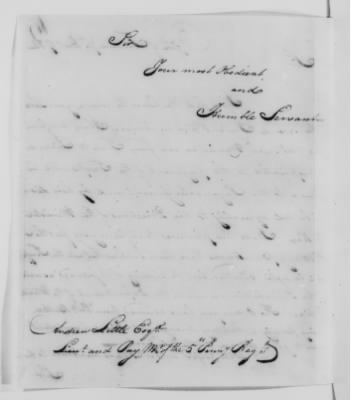 Sir
Your most Obedient
and
Humble Servant
Andrew Little Esqr.
Lieut. and Pay Mr. of the 5th Penny. Regt.